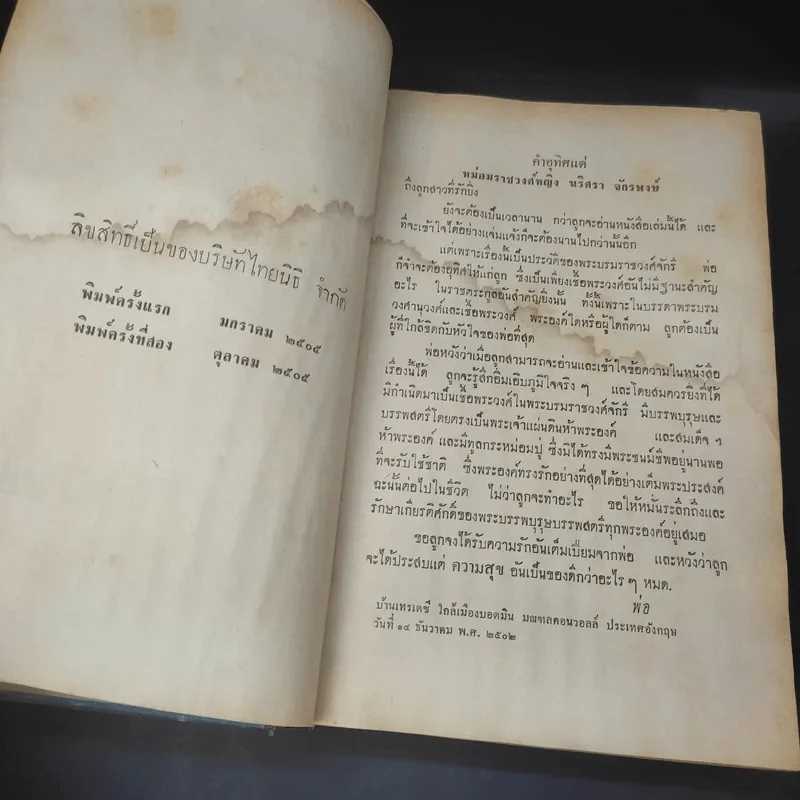 ลิขสิทธิ์เป็นของบริษัทไทยนิธิ จำกัด
พิมพ์ครั้งแรก มกราคม ๒๕๐๕
พิมพ์ครั้งที่สอง ตุลาคม ๒๕๐๕
คำอุทิศแด่
หม่อมราชวงศ์หญิง นริศรา จักรพงษ์
ถึงลูกสาวที่รักยิ่ง
ยังจะต้องเป็นเวลานาน กว่าลูกจะอ่านหนังสือเล่มนี้ได้ และ
ที่จะเข้าใจได้อย่างแจ่มแจ้งก็จะต้องนานไปกว่านั้นอีก
แต่เพราะเรื่องนี้เป็นประวัติของพระบรมราชวงศ์จักรี พ่อ
ก็จำจะต้องอุทิศให้แก่ลูก ซึ่งเป็นเพียงเชื้อพระวงศ์อันไม่มีฐานะสำคัญ
อะไร ในราชตระกูลอันสำคัญยิ่งนั้น ทั้งนี้เพราะในบรรดาพระบรม
วงศานุวงศ์และเชื้อพระวงศ์ พระองค์ใดหรือผู้ใดก็ตาม ลูกต้องเป็น
ผู้ที่ใกล้ชิดกับหัวใจของพ่อที่สุด
พ่อหวังว่าเมื่อลูกสามารถจะอ่านและเข้าใจข้อความในหนังสือ
เรื่องนี้ได้ ลูกจะรู้สึกอิ่มเอิบภูมิใจจริง ๆ และโดยสมควรยิ่งที่ได้
มีกำเนิดมาเป็นเชื้อพระวงศ์ในพระบรมราชวงศ์จักรี มีบรรพบุรุษและ
บรรพสตรีโดยตรงเป็นพระเจ้าแผ่นดินห้าพระองค์ และสมเด็จ ๆ
ห้าพระองค์ และมีทูลกระหม่อมปู่ ซึ่งมิได้ทรงมีพระชนม์ชีพอยู่นานพอ
ที่จะรับใช้ชาติ ซึ่งพระองค์ทรงรักอย่างที่สุดได้อย่างเต็มพระประสงค์
ฉะนั้นต่อไปในชีวิต ไม่ว่าลูกจะทำอะไร ขอให้หมั่นระลึกถึงและ
รักษาเกียรติศักดิ์ของพระบรรพบุรุษบรรพสตรีทุกพระองค์อยู่เสมอ
ขอลูกจงได้รับความรักอันเต็มเปี่ยมจากพ่อ และหวังว่าลูก
จะได้ประสบแต่ ความสุข อันเป็นของดีกว่าอะไร ๆ หมด.
พ่อ
บ้านเทรเดซี ใกล้เมืองบอดมิน มณฑลคอนวอลล์ ประเทศอังกฤษ
วันที่ ๑๔ ธันวาคม พ.ศ. ๒๕๐๒